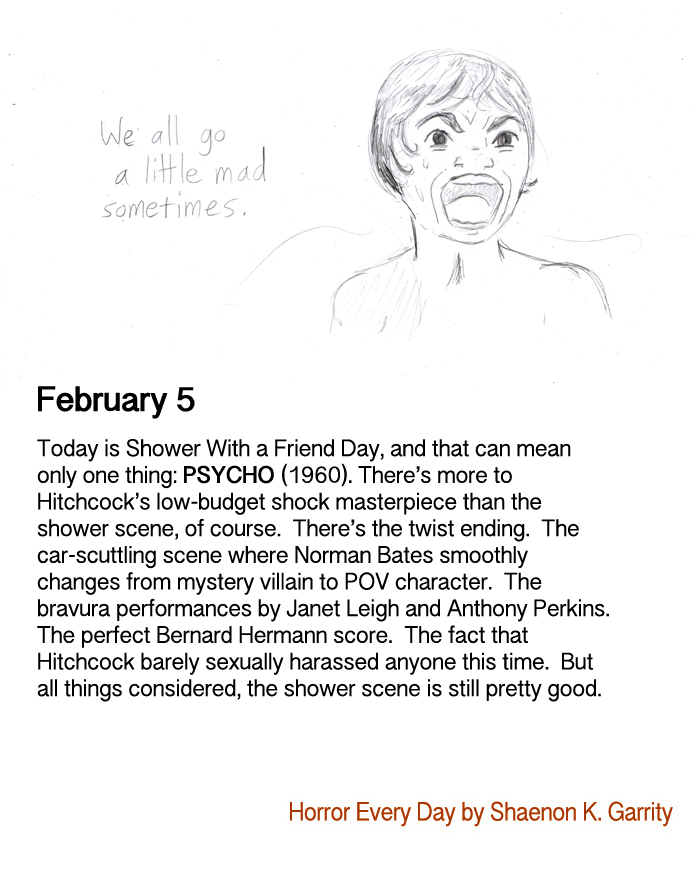 We all go
a little mad
sometimes.
February 5
Today is Shower With a Friend Day, and that can mean
only one thing: PSYCHO (1960). There's more to
Hitchcock's low-budget shock masterpiece than the
shower scene, of course.  There's the twist ending.  The
car-scuttling scene where Norman Bates smoothly
changes from mystery villain to POV character.  The
bravura performances by Janet Leigh and Anthony Perkins.
The perfect Bernard Hermann score.  The fact that
Hitchcock barely sexually harassed anyone this time.  But
all things considered, the shower scene is still pretty good.
Horror Every Day by Shaenon K. Garrity